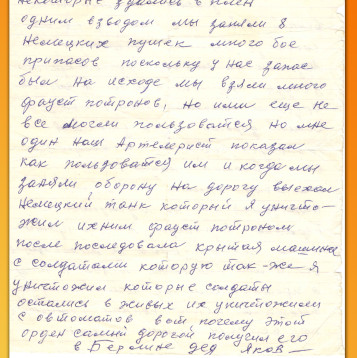 некоторые здались в плен
одним взводом мы заняли 8
немецких пушек много бое
припасов поскольку у нас запас
был на исходе мы взяли много
фауст потронов, но ими еще не
все могли пользоватся но мне
один наш Артелерист показал
как пользоватся им и когда мы
заняли оборону на дорогу выехал
немецкий танк который я уничто-
жил ихним фауст потроном
после последовала крытая машина
с солдатами которую так-же я
уничтожил которые солдаты
остались в живых их уничтожили
с автоматов вот почему этот
орден самый дорогой получил его
в Берлине дед Яков—